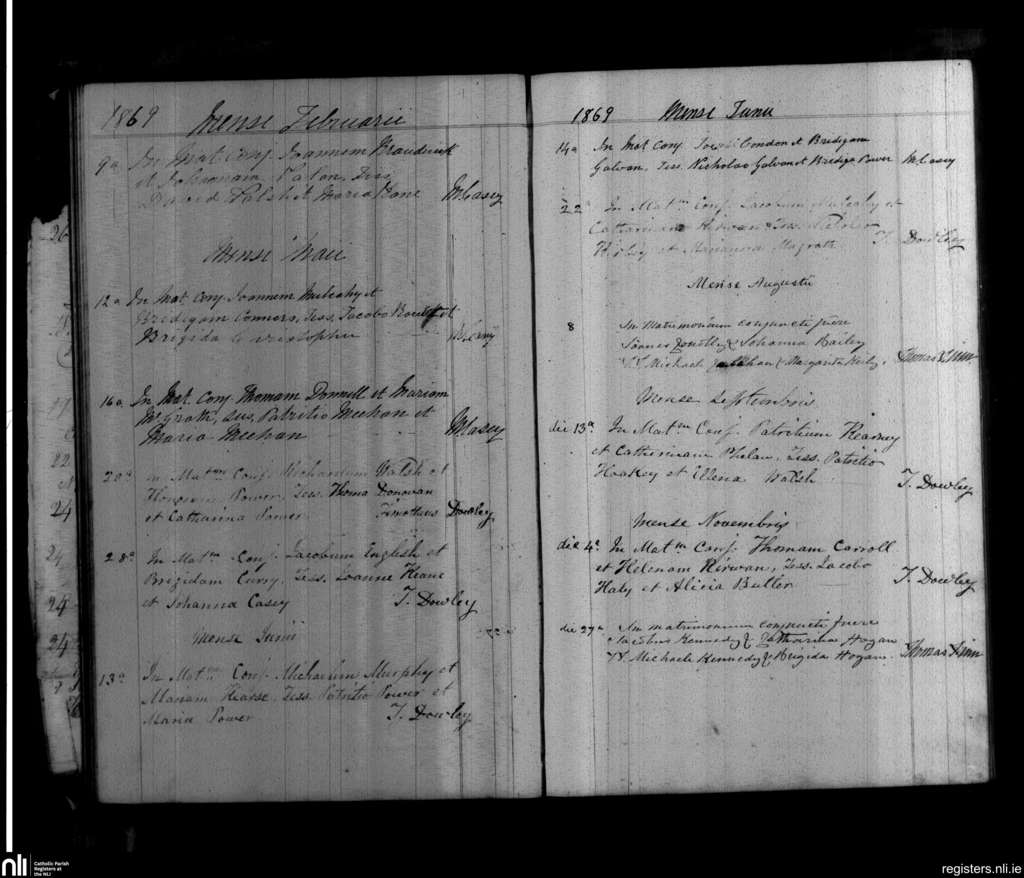 1869 Mense Februarii
9a In Mat. Conj. Joannem
et Johannam Tobin, Tess
David Walsh et Maria Kane McCasey
Mense Maii
12a In Mat. Conj. Joannem Mulcahy et
Bridigam Connors, Tess. Jacobo et
Brigida
16a In Mat. Conj. Thomam Donnell et Mariam
McGrath, Tess. Patritio Meehan et
Maria Meehan McCasey
20a In Matm Conj. Richardum Walsh et
Honoram Power. Tess. Thoma Donovan
et Catharina Power Timotheus Dowley
28a In Matm Conj. Jacobum English et
Brigidam Curry. Tess. Joanne Keane
et Johanna Casey T. Dowley
Mense Junii
13a In Matm Conj. Michaelem Murphy et
Mariam Hearse. Tess. Patritio Power et
Maria Power T. Dowley
1869 Mense Junii
14a In Mat Conj. Condon et Bridigam
Galvan, Tess. Nicholas Galvan et Bridga Power McCasey
22a In Matm Conj. Jacobum Mulcahy et
Catharinam Kirwan Tess.
et Marianna Magrath T. Dowley
Mense Augusti
8 In Matrimonium conjuncti fuere
& Johanna Bailey
TT. Michael & Margarita Thomas Finn
Mense Septembris
die 13a In Matm Conj. Patritium Kearney
et Catherinam Phelan. Tess. Patritio
et Ellena Walsh T. Dowley
Mense Novembris
die 4a In Matm Conj. Thomam Carroll
et Helenam Kirwan, Tess. Jacobo
Haly et Alicia Butler T. Dowley
die 27a In matrimonium conjuncti fuere
Jacobus Kennedy & Catharina Hogan
TT. Michaele Kennedy & Brigida Hogan. Thomas Finn
26
22
24
24
24
24
nli Catholic Parish
Registers at
the NLI
registers.nli.ie